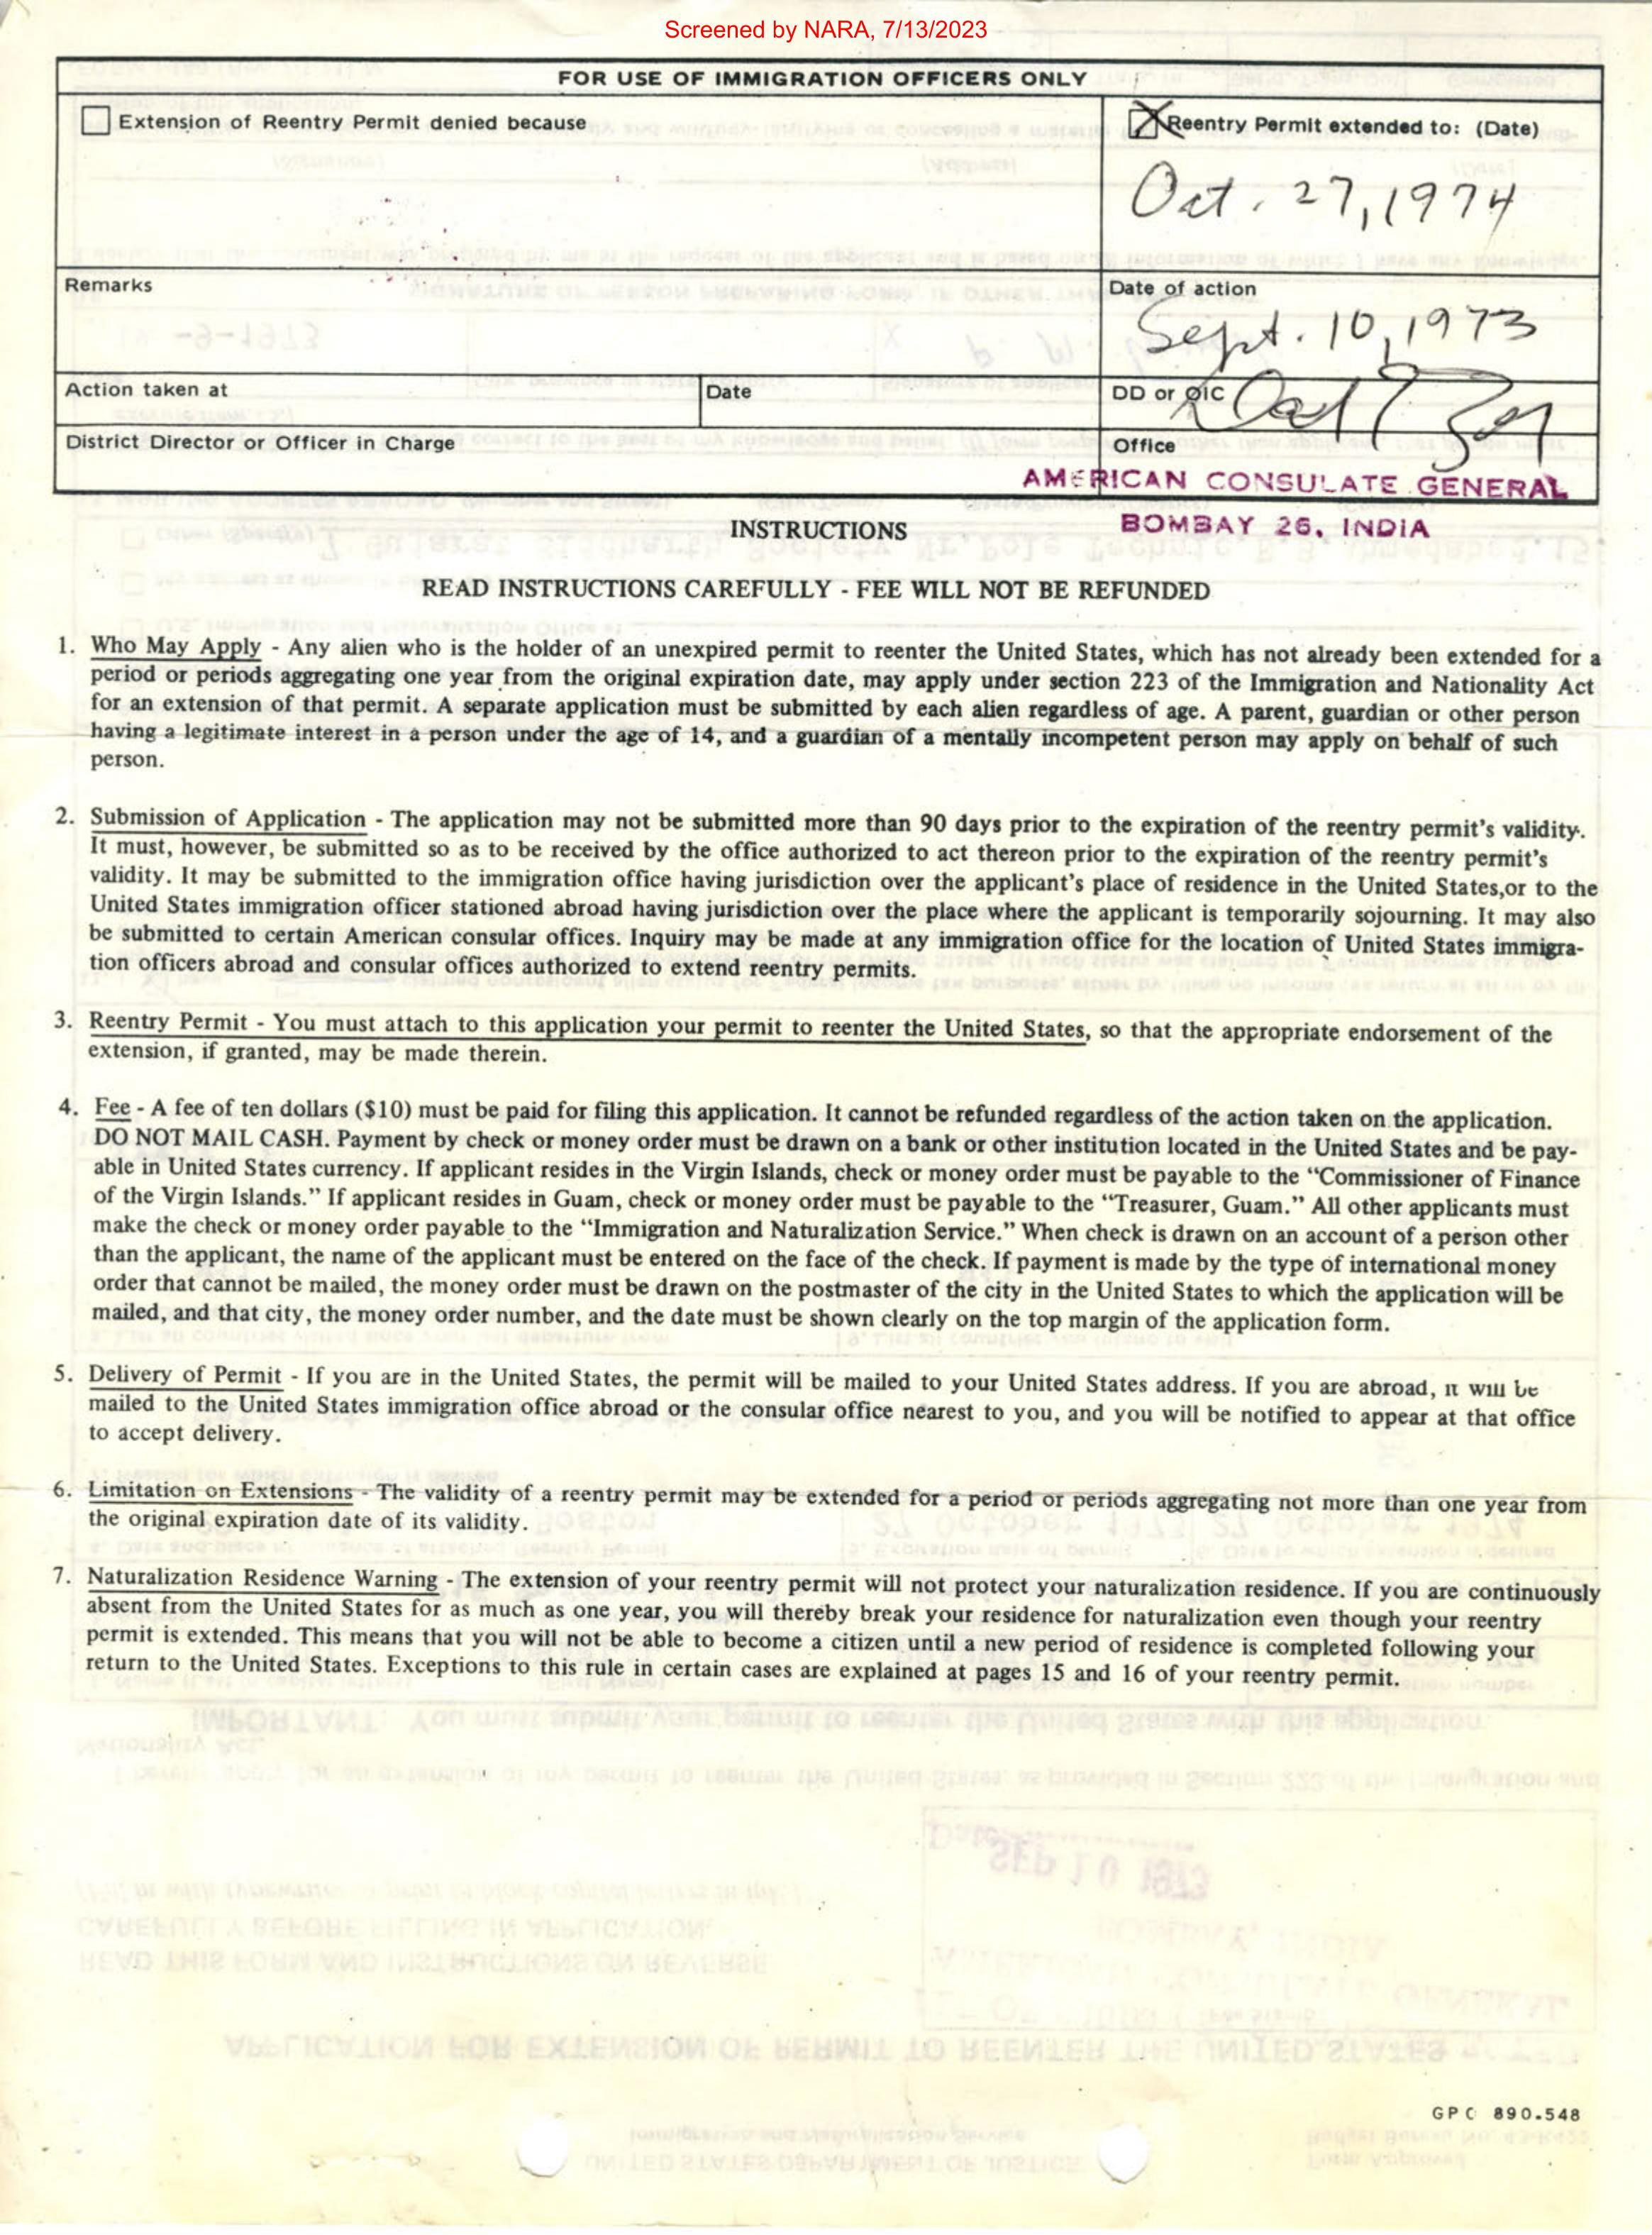 Screened by NARA, 7/13/2023
FOR USE OF IMMIGRATION OFFICERS ONLY
Extension of Reentry Permit denied because
Reentry Permit extended to: (Date)
Oct. 27, 1974
Remarks
Date of action
Sept. 10, 1973
Action taken at
Date
DD or OIC
District Director or Officer in Charge
Office
AMERICAN CONSULATE GENERAL
BOMBAY 26, INDIA
INSTRUCTIONS
READ INSTRUCTIONS CAREFULLY - FEE WILL NOT BE REFUNDED
1. Who May Apply - Any alien who is the holder of an unexpired permit to reenter the United States, which has not already been extended for a
period or periods aggregating one year from the original expiration date, may apply under section 223 of the Immigration and Nationality Act
for an extension of that permit. A separate application must be submitted by each alien regardless of age. A parent, guardian or other person
having a legitimate interest in a person under the age of 14, and a guardian of a mentally incompetent person may apply on behalf of such
person.
2. Submission of Application - The application may not be submitted more than 90 days prior to the expiration of the reentry permit's validity.
It must, however, be submitted so as to be received by the office authorized to act thereon prior to the expiration of the reentry permit's
validity. It may be submitted to the immigration office having jurisdiction over the applicant's place of residence in the United States,or to the
United States immigration officer stationed abroad having jurisdiction over the place where the applicant is temporarily sojourning. It may also
be submitted to certain American consular offices. Inquiry may be made at any immigration office for the location of United States immigra-
tion officers abroad and consular offices authorized to extend reentry permits.
3. Reentry Permit - You must attach to this application your permit to reenter the United States, so that the appropriate endorsement of the
extension, if granted, may be made therein.
4. Fee - A fee of ten dollars ($10) must be paid for filing this application. It cannot be refunded regardless of the action taken on the application.
DO NOT MAIL CASH. Payment by check or money order must be drawn on a bank or other institution located in the United States and be pay-
able in United States currency. If applicant resides in the Virgin Islands, check or money order must be payable to the "Commissioner of Finance
of the Virgin Islands." If applicant resides in Guam, check or money order must be payable to the "Treasurer, Guam." All other applicants must
make the check or money order payable to the "Immigration and Naturalization Service." When check is drawn on an account of a person other
than the applicant, the name of the applicant must be entered on the face of the check. If payment is made by the type of international money
order that cannot be mailed, the money order must be drawn on the postmaster of the city in the United States to which the application will be
mailed, and that city, the money order number, and the date must be shown clearly on the top margin of the application form.
5. Delivery of Permit - If you are in the United States, the permit will be mailed to your United States address. If you are abroad, it will be
mailed to the United States immigration office abroad or the consular office nearest to you, and you will be notified to appear at that office
to accept delivery.
6. Limitation on Extensions - The validity of a reentry permit may be extended for a period or periods aggregating not more than one year from
the original expiration date of its validity.
7. Naturalization Residence Warning - The extension of your reentry permit will not protect your naturalization residence. If you are continuously
absent from the United States for as much as one year, you will thereby break your residence for naturalization even though your reentry
permit is extended. This means that you will not be able to become a citizen until a new period of residence is completed following your
return to the United States. Exceptions to this rule in certain cases are explained at pages 15 and 16 of your reentry permit.
GPO 890.548